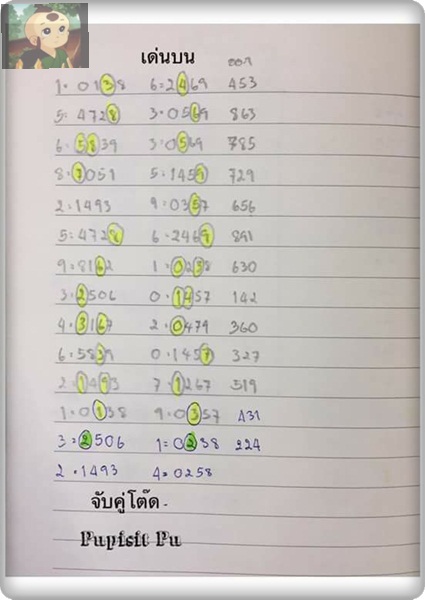 เด่นบน ออก
1. 0138 6=2469 453
5. 4728 3.0569 863
6=5839 3.0569 785
8.7051 5.1459 729
2.1493 9=0357 656
5.4728 6.2469 891
9=8162 1.0238 630
3.2506 0.1457 142
4.3167 2.0479 360
6.5839 0.1457 327
2.1493 7.1267 519
1=0138 9=0357 431
3=2506 1=0238 224
2.1493 4=0258
จับคู่โต๊ด -
Pupisit Pu